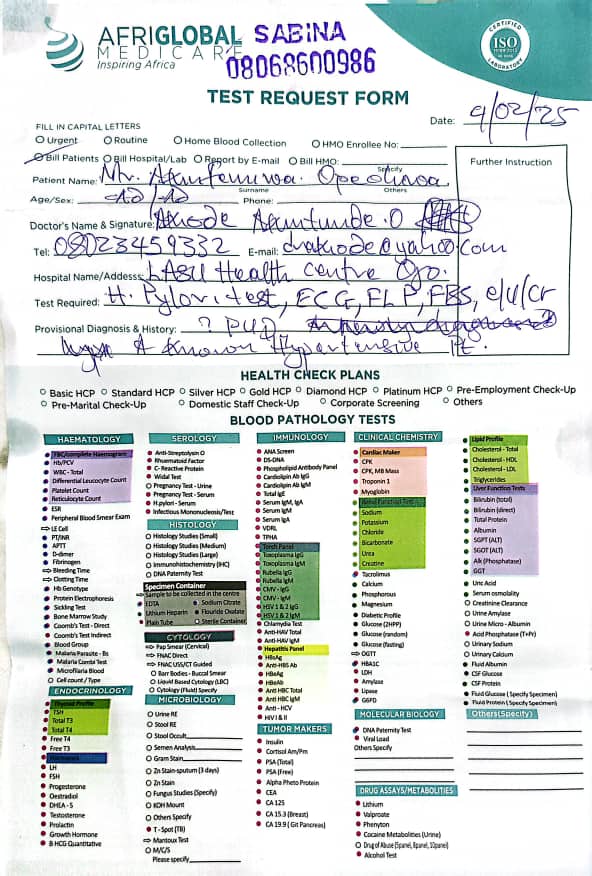 AFRIGLOBAL
MEDICARE
Inspiring Africa
SABINA
08068600986
CERTIFIED
ISO
LABORATORY
TEST REQUEST FORM
Date: 9/02/25
FILL IN CAPITAL LETTERS
Urgent Routine Home Blood Collection HMO Enrollee No:
Bill Patients Bill Hospital/Lab Report by E-mail Bill HMO:
Specify
Further Instruction
Patient Name: Mr.
Surname Others
Age/Sex: Phone:
Doctor's Name & Signature: Akintunde .O
Tel: 08023459332 E-mail: drakode@yahoo.com
Hospital Name/Address: LASU Health Centre Ojo.
Test Required: H. Pylori test, ECG, FLP, FBS, e/u/cr
Provisional Diagnosis & History: ? PUD
A Known Hypertensive Pt.
HEALTH CHECK PLANS
Basic HCP Standard HCP Silver HCP Gold HCP Diamond HCP Platinum HCP Pre-Employment Check-Up
Pre-Marital Check-Up Domestic Staff Check-Up Corporate Screening Others
BLOOD PATHOLOGY TESTS
HAEMATOLOGY
FBC/complete Haemogram
Hb/PCV
WBC - Total
Differential Leucocyte Count
Platelet Count
Reticulocyte Count
ESR
Peripheral Blood Smear Exam
LE Cell
PT/INR
APTT
D-dimer
Fibrinogen
Bleeding Time
Clotting Time
Hb Genotype
Protein Electrophoresis
Sickling Test
Bone Marrow Study
Coomb's Test - Direct
Coomb's Test Indirect
Blood Group
Malaria Parasite - Bs
Malaria Comba Test
Microfilaria Blood
Cell count / Type
ENDOCRINOLOGY
Thyroid Profile
TSH
Total T3
Total T4
Free T4
Free T3
Hormones
LH
FSH
Progesterone
Oestradiol
DHEA - S
Testosterone
Prolactin
Growth Hormone
B HCG Quantitative
SEROLOGY
Anti-Streptolysin O
Rheumatoid Factor
C- Reactive Protein
Widal Test
Pregnancy Test - Urine
Pregnancy Test - Serum
H.pylori - Serum
Infectious Mononucleosis/Test
HISTOLOGY
Histology Studies (Small)
Histology Studies (Medium)
Histology Studies (Large)
Immunohistochemistry (IHC)
DNA Paternity Test
Specimen Container
Sample to be collected in the centre
EDTA Sodium Citrate
Lithium Heparin Flouride Oxalate
Plain Tube Sterile Container
CYTOLOGY
Pap Smear (Cervical)
FNAC Direct
FNAC USS/CT Guided
Barr Bodies - Buccal Smear
Liquid Based Cytology (LBC)
Cytology (Fluid) Specify
MICROBIOLOGY
Urine RE
Stool RE
Stool Occult
Semen Analysis
Gram Stain
Zn Stain-sputum (3 days)
Zn Stain
Fungus Studies (Specify)
KOH Mount
Others Specify
T - Spot (TB)
Mantoux Test
M/C/S
Please specify
IMMUNOLOGY
ANA Screen
DS-DNA
Phospholipid Antibody Panel
Cardiolipin Ab IgG
Cardiolipin Ab IgM
Total IgE
Serum IgM, IgA
Serum IgM
Serum IgA
VDRL
TPHA
Torch Panel
Toxoplasma IgG
Toxoplasma IgM
Rubella IgG
Rubella IgM
CMV - IgG
CMV - IgM
HSV 1 & 2 IgG
HSV 1 & 2 IgM
Chlamydia Test
Anti-HAV Total
Anti-HAV IgM
Hepatitis Panel
HBsAg
Anti-HBS Ab
HBeAg
HBeAb
Anti HBC Total
Anti HBC IgM
Anti - HCV
HIV I & II
TUMOR MAKERS
Insulin
Cortisol Am/Pm
PSA (Total)
PSA (Free)
Alpha Pheto Protein
CEA
CA 125
CA 15.3 (Breast)
CA 19.9 ( Git Pancreas)
CLINICAL CHEMISTRY
Cardiac Maker
CPK
CPK, MB Mass
Troponin 1
Myoglobin
Renal Function Test
Sodium
Potassium
Chloride
Bicarbonate
Urea
Creatine
Tacrolimus
Calcium
Phosphorous
Magnesium
Diabetic Profile
Glucose (2HPP)
Glucose (random)
Glucose (fasting)
OGTT
HBA1C
LDH
Amylase
Lipase
G6PD
MOLECULAR BIOLOGY
DNA Paternity Test
Viral Load
Others Specify
DRUG ASSAYS/METABOLITIES
Lithium
Valproate
Phenyton
Cocaine Metabolities (Urine)
Drug of Abuse (5panel, 8panel, 10panel)
Alcohol Test
Lipid Profile
Cholesterol - Total
Cholesterol - HDL
Cholesterol - LDL
Triglycerides
Liver Function Tests
Bilirubin (total)
Bilirubin (direct)
Total Protein
Albumin
SGPT (ALT)
SGOT (ALT)
Alk (Phosphatase)
GGT
Uric Acid
Serum osmolality
Creatinine Clearance
Urine Amylase
Urine Micro - Albumin
Acid Phosphatase (T+Pr)
Urinary Sodium
Urinary Calcium
Fluid Albumin
CSF Glucose
CSF Protein
Fluid Glucose ( Specify Specimen)
Fluid Protein ( Specify Specimen)
Others(Specify)